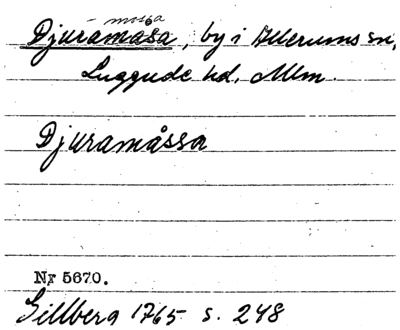 mossa
Djuramåsa, by i Allerums sn,
Luggude hd, Mlm.
Djuramåssa
Nr 5670.
Gillberg 1765 s. 248